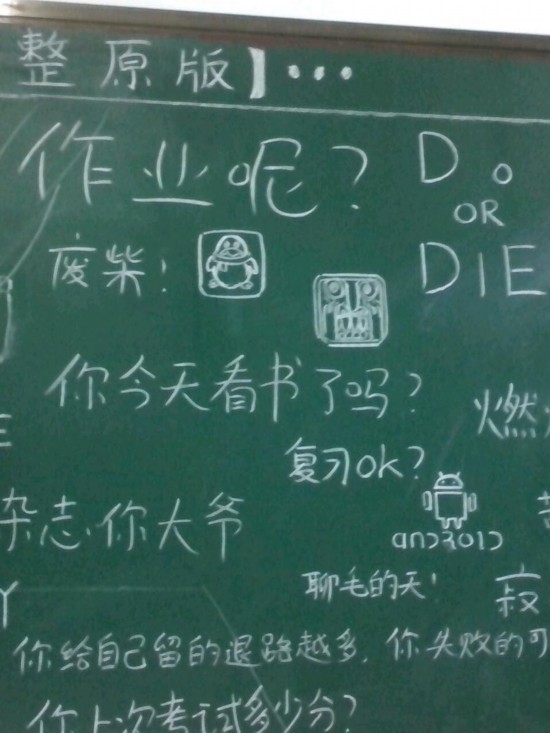 整原版】...
作业呢？ Do
OR
废柴！ DIE
你今天看书了吗？
燃
复习ok？
杂志你大爷
android
聊毛的天！
寂
你给自己留的退路越多，你失败的可
你上次考试多少分？